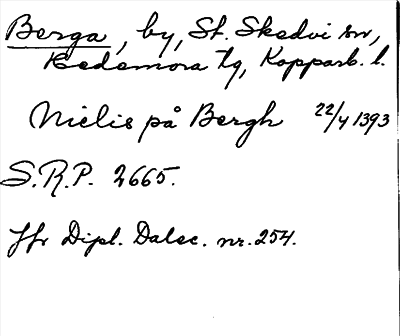 Berga, by, St. Skedvi sn,
Hedemora tg, Kopparb. l.
Nielis på Bergh 22/4 1393
S.R.P. 2665.
Jfr Dipl. Dalec. nr. 254.